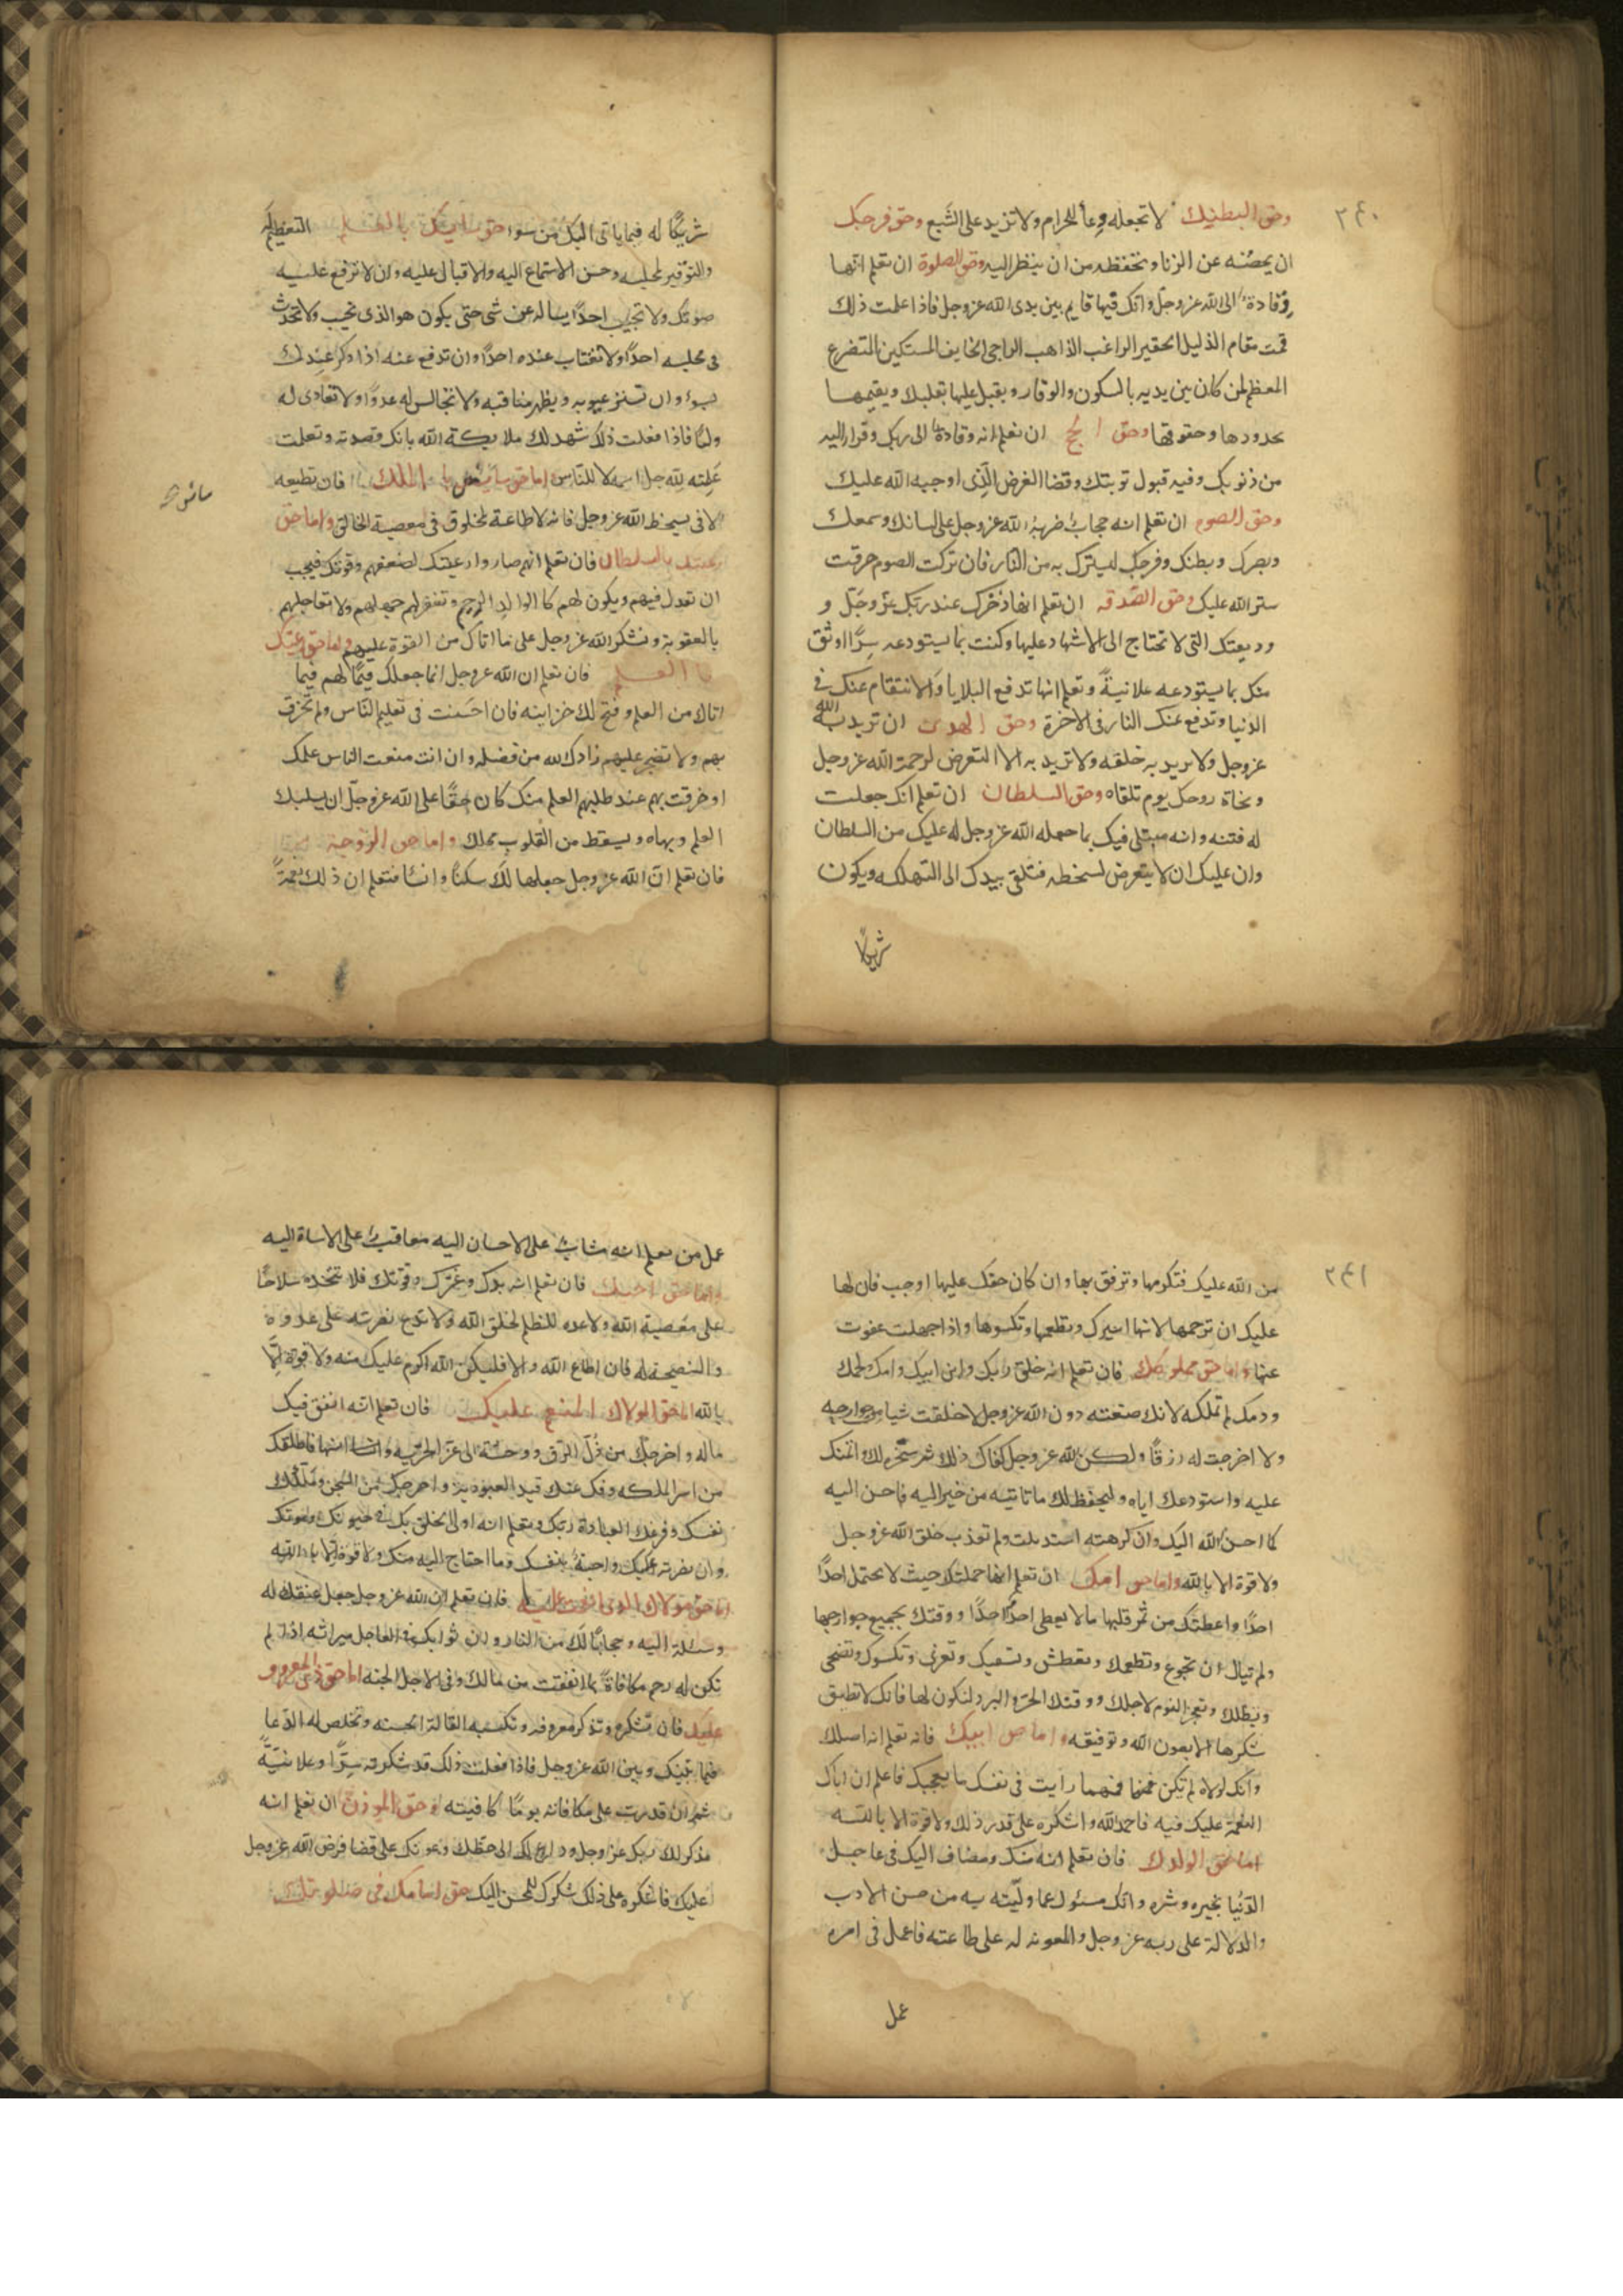 ٢٤٠
وحق البطنك لا تجعله وعأ للحرام ولا تزيد على الشبع وحق فرجك
ان يحصنه عن الزنا وتحفظه من ان ينظر اليه وحق الصلوة ان تعلم انها
وفادة الى الله عز وجل وانك فيها قايم بين يدى الله عز وجل فاذا علمت ذلك
قمت مقام الذليل الحقير الراغب الذاهب الراجى الخايف المستكين المتضرع
المعظم لمن كان بين يديه بالسكون والوقار ويقبل عليها بقلبك ويقيمها
بحدودها وحقوقها وحق الحج ان تعلم انه وفادة الى ربك وفرار اليه
من ذنوبك وفيه قبول توبتك وقضا الفرض الذى اوجبه الله عليك
وحق الصوم ان تعلم انه حجاب ضربه الله عز وجل على لسانك وسمعك
وبصرك وبطنك وفرجك ليسترك به من النار فان تركت الصوم خرقت
ستر الله عليك وحق الصدقه ان تعلم انها ذخرك عند ربك عز وجل و
وديعتك التى لا تحتاج الى الاشهاد عليها وكنت بما يستودعه سرا اوثق
منك بما يستودعه علانية وتعلم انها تدفع البلايا والانتقام عنك فى
الدنيا وتدفع عنك النار فى الاخرة وحق الهدى ان تريد به الله
عز وجل ولا يريد به خلقه ولا تريد به الا التعرض لرحمة الله عز وجل
ونجاة روحك يوم تلقاه وحق السلطان ان تعلم انك جعلت
له فتنه وانه مبتلى فيك بما جعله الله عز وجل له عليك من السلطان
وان عليك ان لا يتعرض لسخطه فتلقى بيدك الى التهلكه ويكون
شريكا
شريكا له فيما ياتى اليك من سوا حق سايسك بالعلم التعظيم له
والتوقير لمجلسه وحسن الاستماع اليه والاقبال عليه وان لا ترفع عليه
صوتك ولا تجيب احدا يساله عن شى حتى يكون هو الذى يجيب ولا تحدث
فى مجلسه احدا ولا تغتاب عنده احدا وان تدفع عنه اذا ذكر عندك
بسوء وان تستر عيوبه ويظهر مناقبه ولا تجالس له عدوا ولا تعادى له
وليا فاذا فعلت ذلك شهد لك ملايكة الله بانك قصدته وتعلمت
علمه لله جل اسمه لا للناس اما حق سايسك بالملك فان تطيعه
لا فى سخط الله عز وجل فانه لا طاعة لمخلوق فى معصية الخالق واما حق
رعيتك بالسلطان فان تعلم انهم صاروا رعيتك لضعفهم وقوتك فيجب
ان تعدل فيهم ويكون لهم كالوالد الرحيم وتغفر لهم جهلهم ولا تعاجلهم
بالعقوبة وتشكر الله عز وجل على ما اتاك من القوة عليهم واما حق رعيتك
بالعلم فان تعلم ان الله عز وجل انما جعلك قيما لهم فيما
اتاك من العلم وفتح لك خزاينه فان احسنت فى تعليم الناس ولم تخرق
بهم ولا تضجر عليهم زادك الله من فضله وان انت منعت الناس علمك
او خرقت بهم عند طلبهم العلم منك كان حقا على الله عز وجل ان يسلبك
العلم وبهاه ويسقط من القلوب محلك واما حق الزوجة
فان تعلم ان الله عز وجل جعلها لك سكنا وانسا فتعلم ان ذلك نعمة
٢٤١
من الله عليك فتكرمها وترفق بها وان كان حقك عليها اوجب فان لها
عليك ان ترحمها لانها اسيرك وتطعمها وتكسوها واذا جهلت عفوت
عنها واما حق مملوكك فان تعلم انه خلق ربك وابن ابيك وامك ولحمك
ودمك لم تملكه لانك صنعته دون الله عز وجل لا خلقت شيا من جوارحه
ولا اخرجت له رزقا ولكن الله عز وجل كفاك ذلك ثم سخره لك وائتمنك
عليه واستودعك اياه وليحفظ لك ما تاتيه من خير اليه فاحسن اليه
كما احسن الله اليك وان كرهته استبدلت ولم تعذب خلق الله عز وجل
ولا قوة الا بالله واما حق امك ان تعلم انها حملتك حيث لا يحتمل احدا
احدا واعطتك من ثمر قلبها ما لا يعطى احدا احدا ووقتك بجميع جوارحها
ولم تبال ان تجوع وتطعمك وتعطش وتسقيك وتعرى وتكسوك وتضحى
وتظلك وتهجر النوم لاجلك ووقتك الحر والبرد لتكون لها فانك لا تطيق
شكرها الا بعون الله وتوفيقه واما حق ابيك فانه تعلم انه اصلك
وانك لولاه لم تكن فمهما رايت فى نفسك ما يعجبك فاعلم ان اباك
النعمة عليك فيه فاحمد الله واشكره على قدر ذلك ولا قوة الا بالله
اما حق الولدك فان تعلم انه منك ومضاف اليك فى عاجل
الدنيا بخيره وشره وانك مسئول عما وليته به من حسن الادب
والدلالة على ربه عز وجل والمعونه له على طاعته فاعمل فى امره
عمل
عمل من يعلم انه مثاب على الاحسان اليه معاقب على الاساة اليه
واما حق اخيك فان تعلم انه يدك وعزك وقوتك فلا تتخذه سلاحا
على معصية الله ولا عده للظلم لخلق الله ولا تدع نصرته على عدوه
والنصيحة له فان اطاع الله والا فليكن الله اكرم عليك منه ولا قوة الا
بالله اما حق المولاك المنعم عليك فان تعلم انه انفق فيك
ماله واخرجك من ذل الرق ووحشته الى عز الحريه وانسها فاطلقك
من اسر الملكه وفك عنك قيد العبوديه واخرجك من السجن وملكك
نفسك وفرغك لعبادة ربك وتعلم انه اولى الخلق بك فى حيوتك وموتك
وان نصرته عليك واجبة بنفسك وما احتاج اليه منك ولا قوة الا بالله
اما حق مولاك الذى انعمت عليه فان تعلم ان الله عز وجل جعل عتقك له
وسيلة اليه وحجابا لك من النار وان ثوابك فى العاجل ميراثه اذا لم
تكن له رحم مكافاة بما انفقت من مالك وفى الاجل الجنه اما حق ذى المعروف
عليك فان تشكره وتذكر معروفه وتكسبه القالة الحسنه وتخلص له الدعا
فيما بينك وبين الله عز وجل فاذا فعلت ذلك قد شكرته سرا وعلانية
ثم ان قدرت على مكافاته يوما كافيته وحق الموذن ان تعلم انه
مذكر لك ربك عز وجل وداع لك الى حظك وعونك على قضا فرض الله عز وجل
عليك فاشكره على ذلك شكرك للمحسن اليك حق امامك فى صلوتك